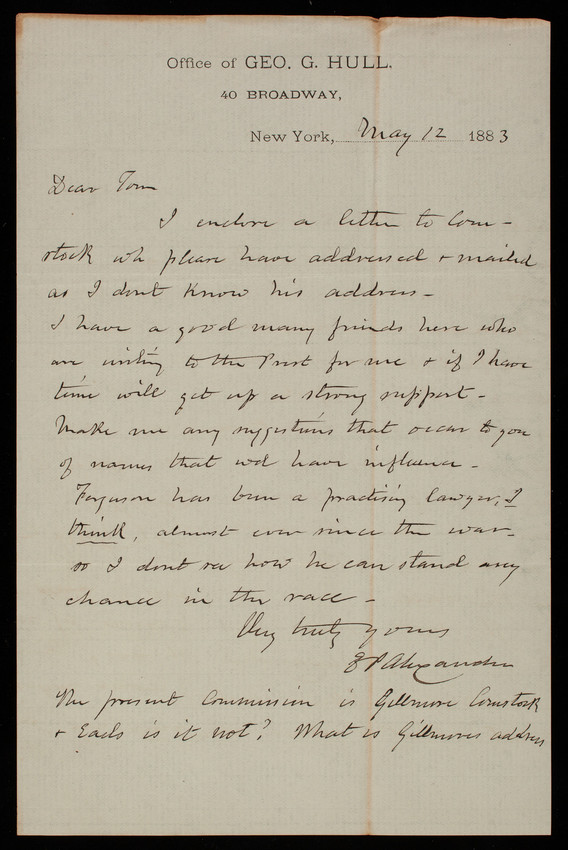 Office of GEO. G. HULL.
40 BROADWAY,
New York, May 12 1883
Dear Tom
I enclose a letter to Com-
stock wh please have addressed & mailed
as I dont know his address -
I have a good many friends here who
are writing to the Prest for me & if I have
time will get up a strong support -
Make me any suggestions that occur to you
of names that wd have influence -
Ferguson has been a practising lawyer, I
think, almost ever since the war -
so I dont see how he can stand any
chance in the race -
Very truly yours
E P Alexander
The present Commission is Gillmore Comstock
& Eads is it not? What is Gillmores address